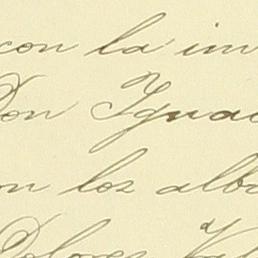 con la im
Don Ignac
on los alba
Dolores V